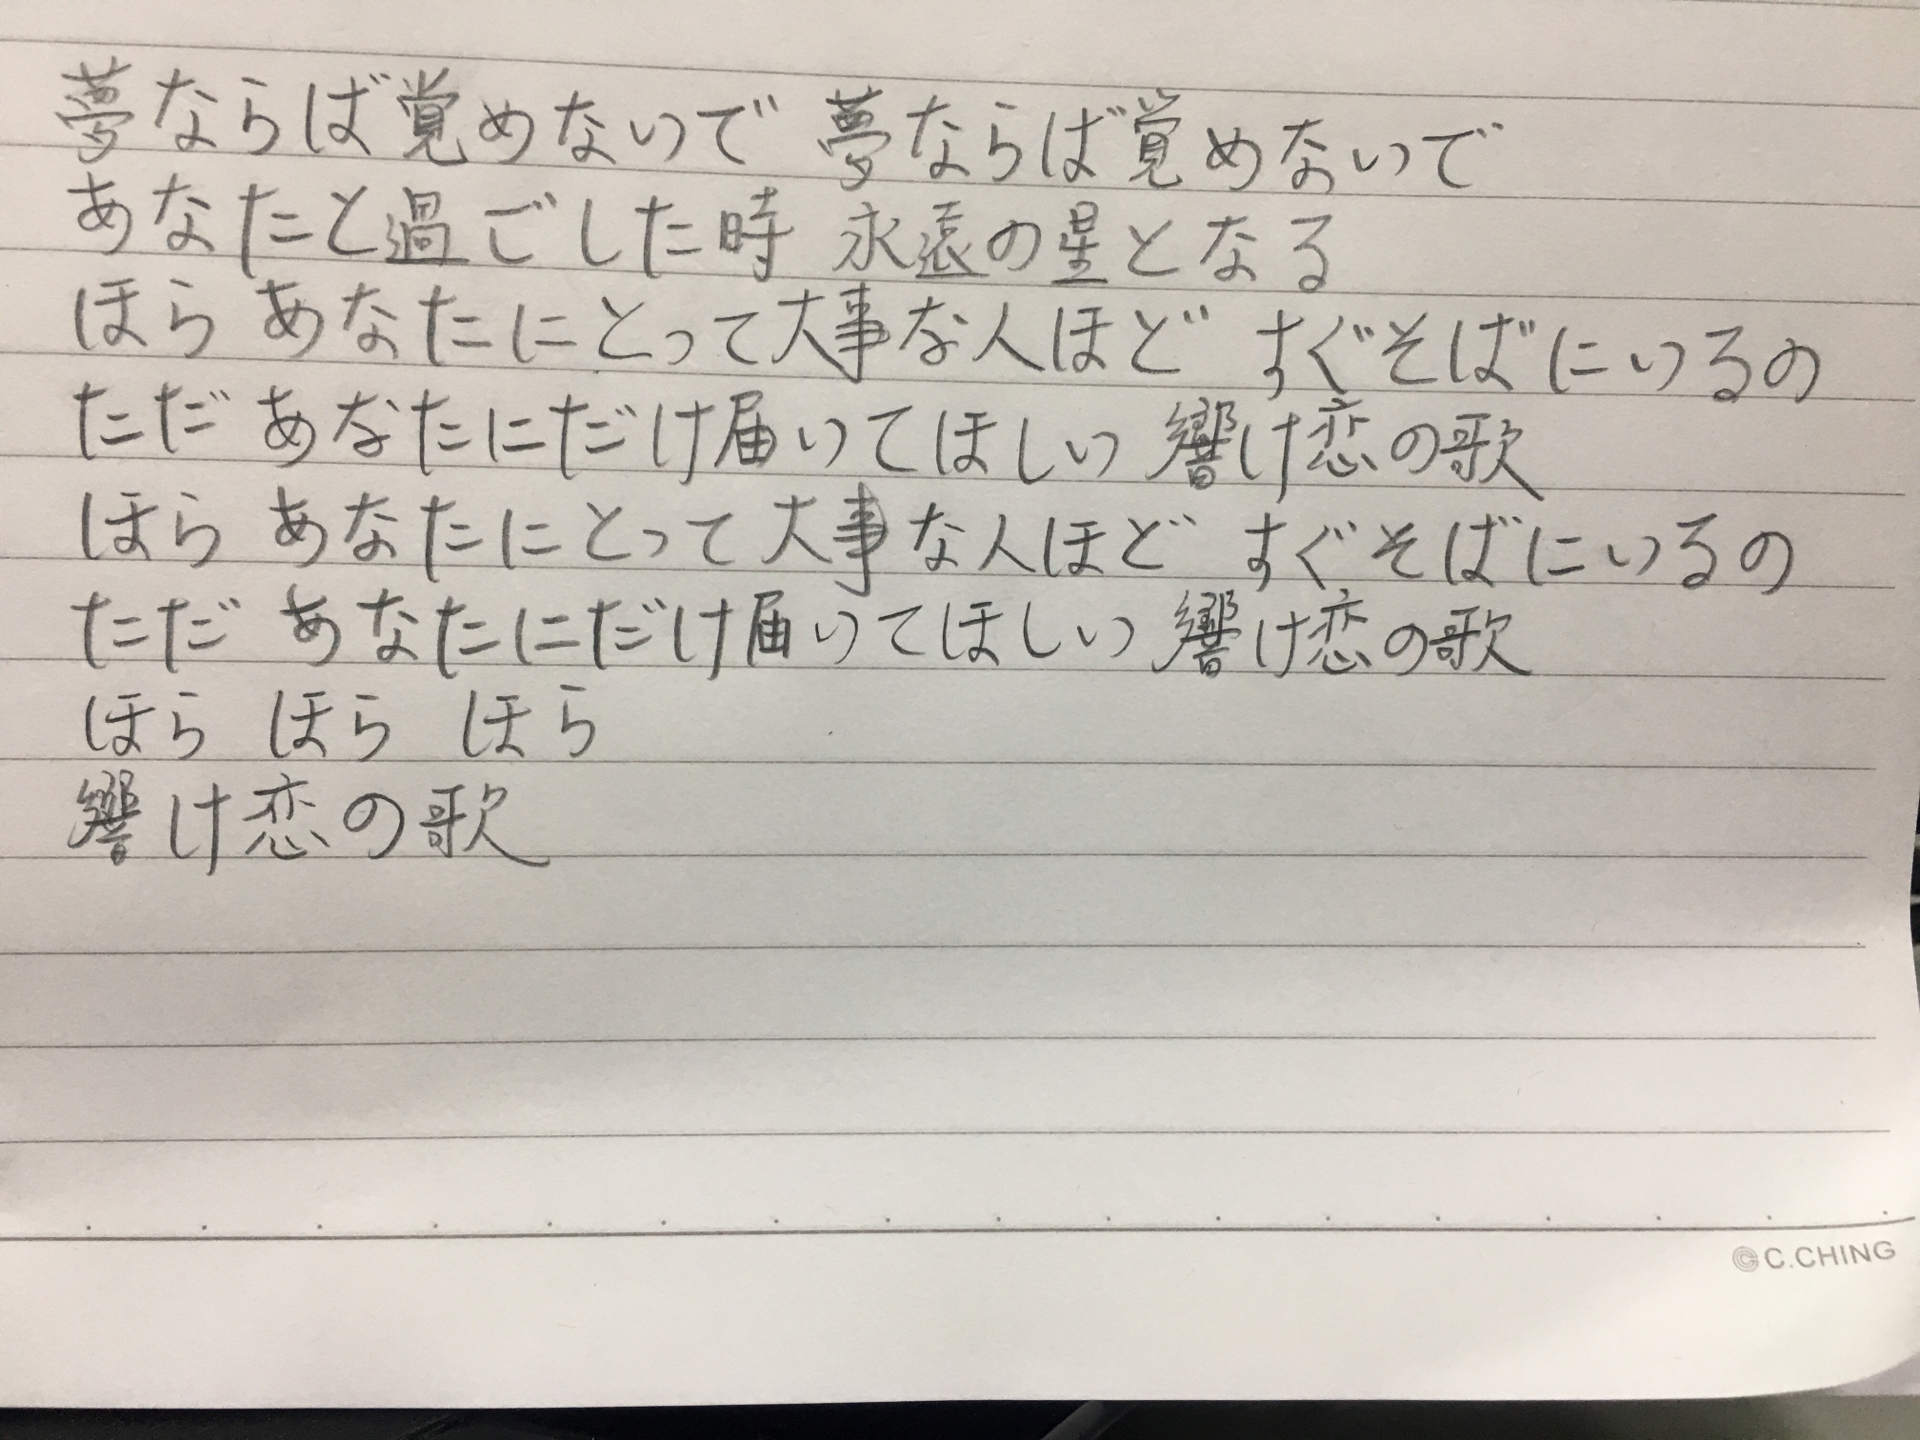 夢ならば覚めないで 夢ならば覚めないで
あなたと過ごした時 永遠の星となる
ほら あなたにとって大事な人ほど すぐそばにいるの
ただ あなたにだけ届いてほしい 響け恋の歌
ほら あなたにとって大事な人ほど すぐそばにいるの
ただ あなたにだけ届いてほしい 響け恋の歌
ほら ほら ほら
響け恋の歌
C.CHING